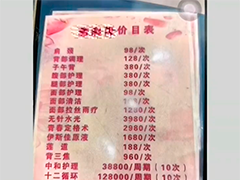 价目表
98/次
背部调理 128/次
子午宫 380/次
腿部护理 380/次
腰部护理 380/次
面部护理 98/次
面部清洁 180/次
面部拉丝雨疗 1280/次
无针水光 3980/次
青春定格术 2980/次
伊斯佳原液 1680/次
莲道 188/次
背三焦 960/次
中和护理 38800/周期(10次)
十二循环 128000/周期(10次)